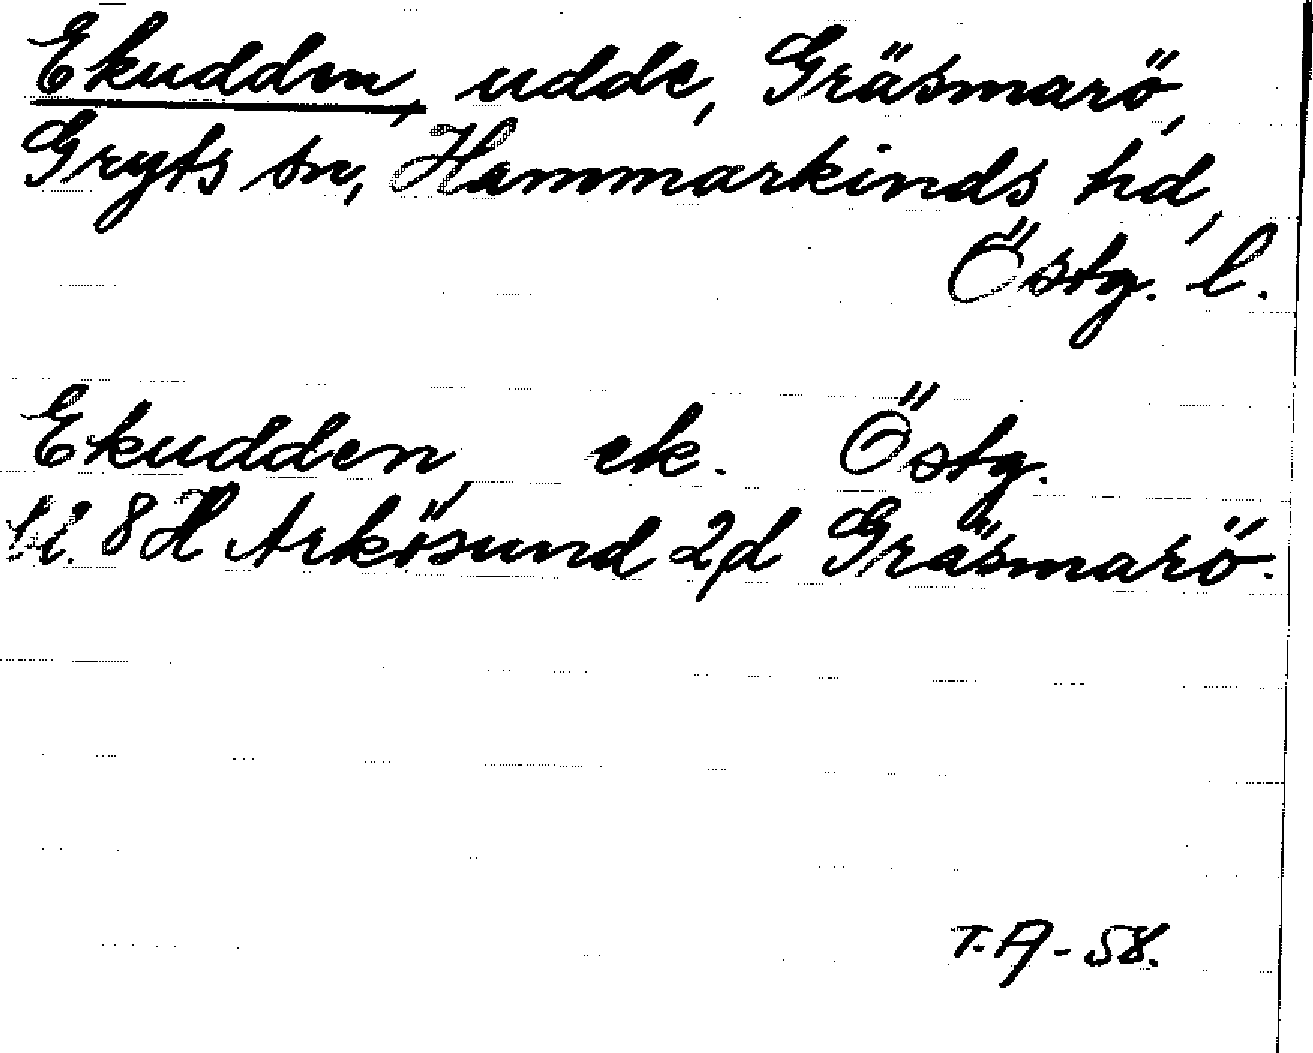 Ekudden, udde, Gräsmarö,
Gryts sn, Hammarkinds hd,
Östg. l.
Ekudden, ek. Östg.
bl. 8 H Arkösund 2d Gräsmarö.
T.A-58.